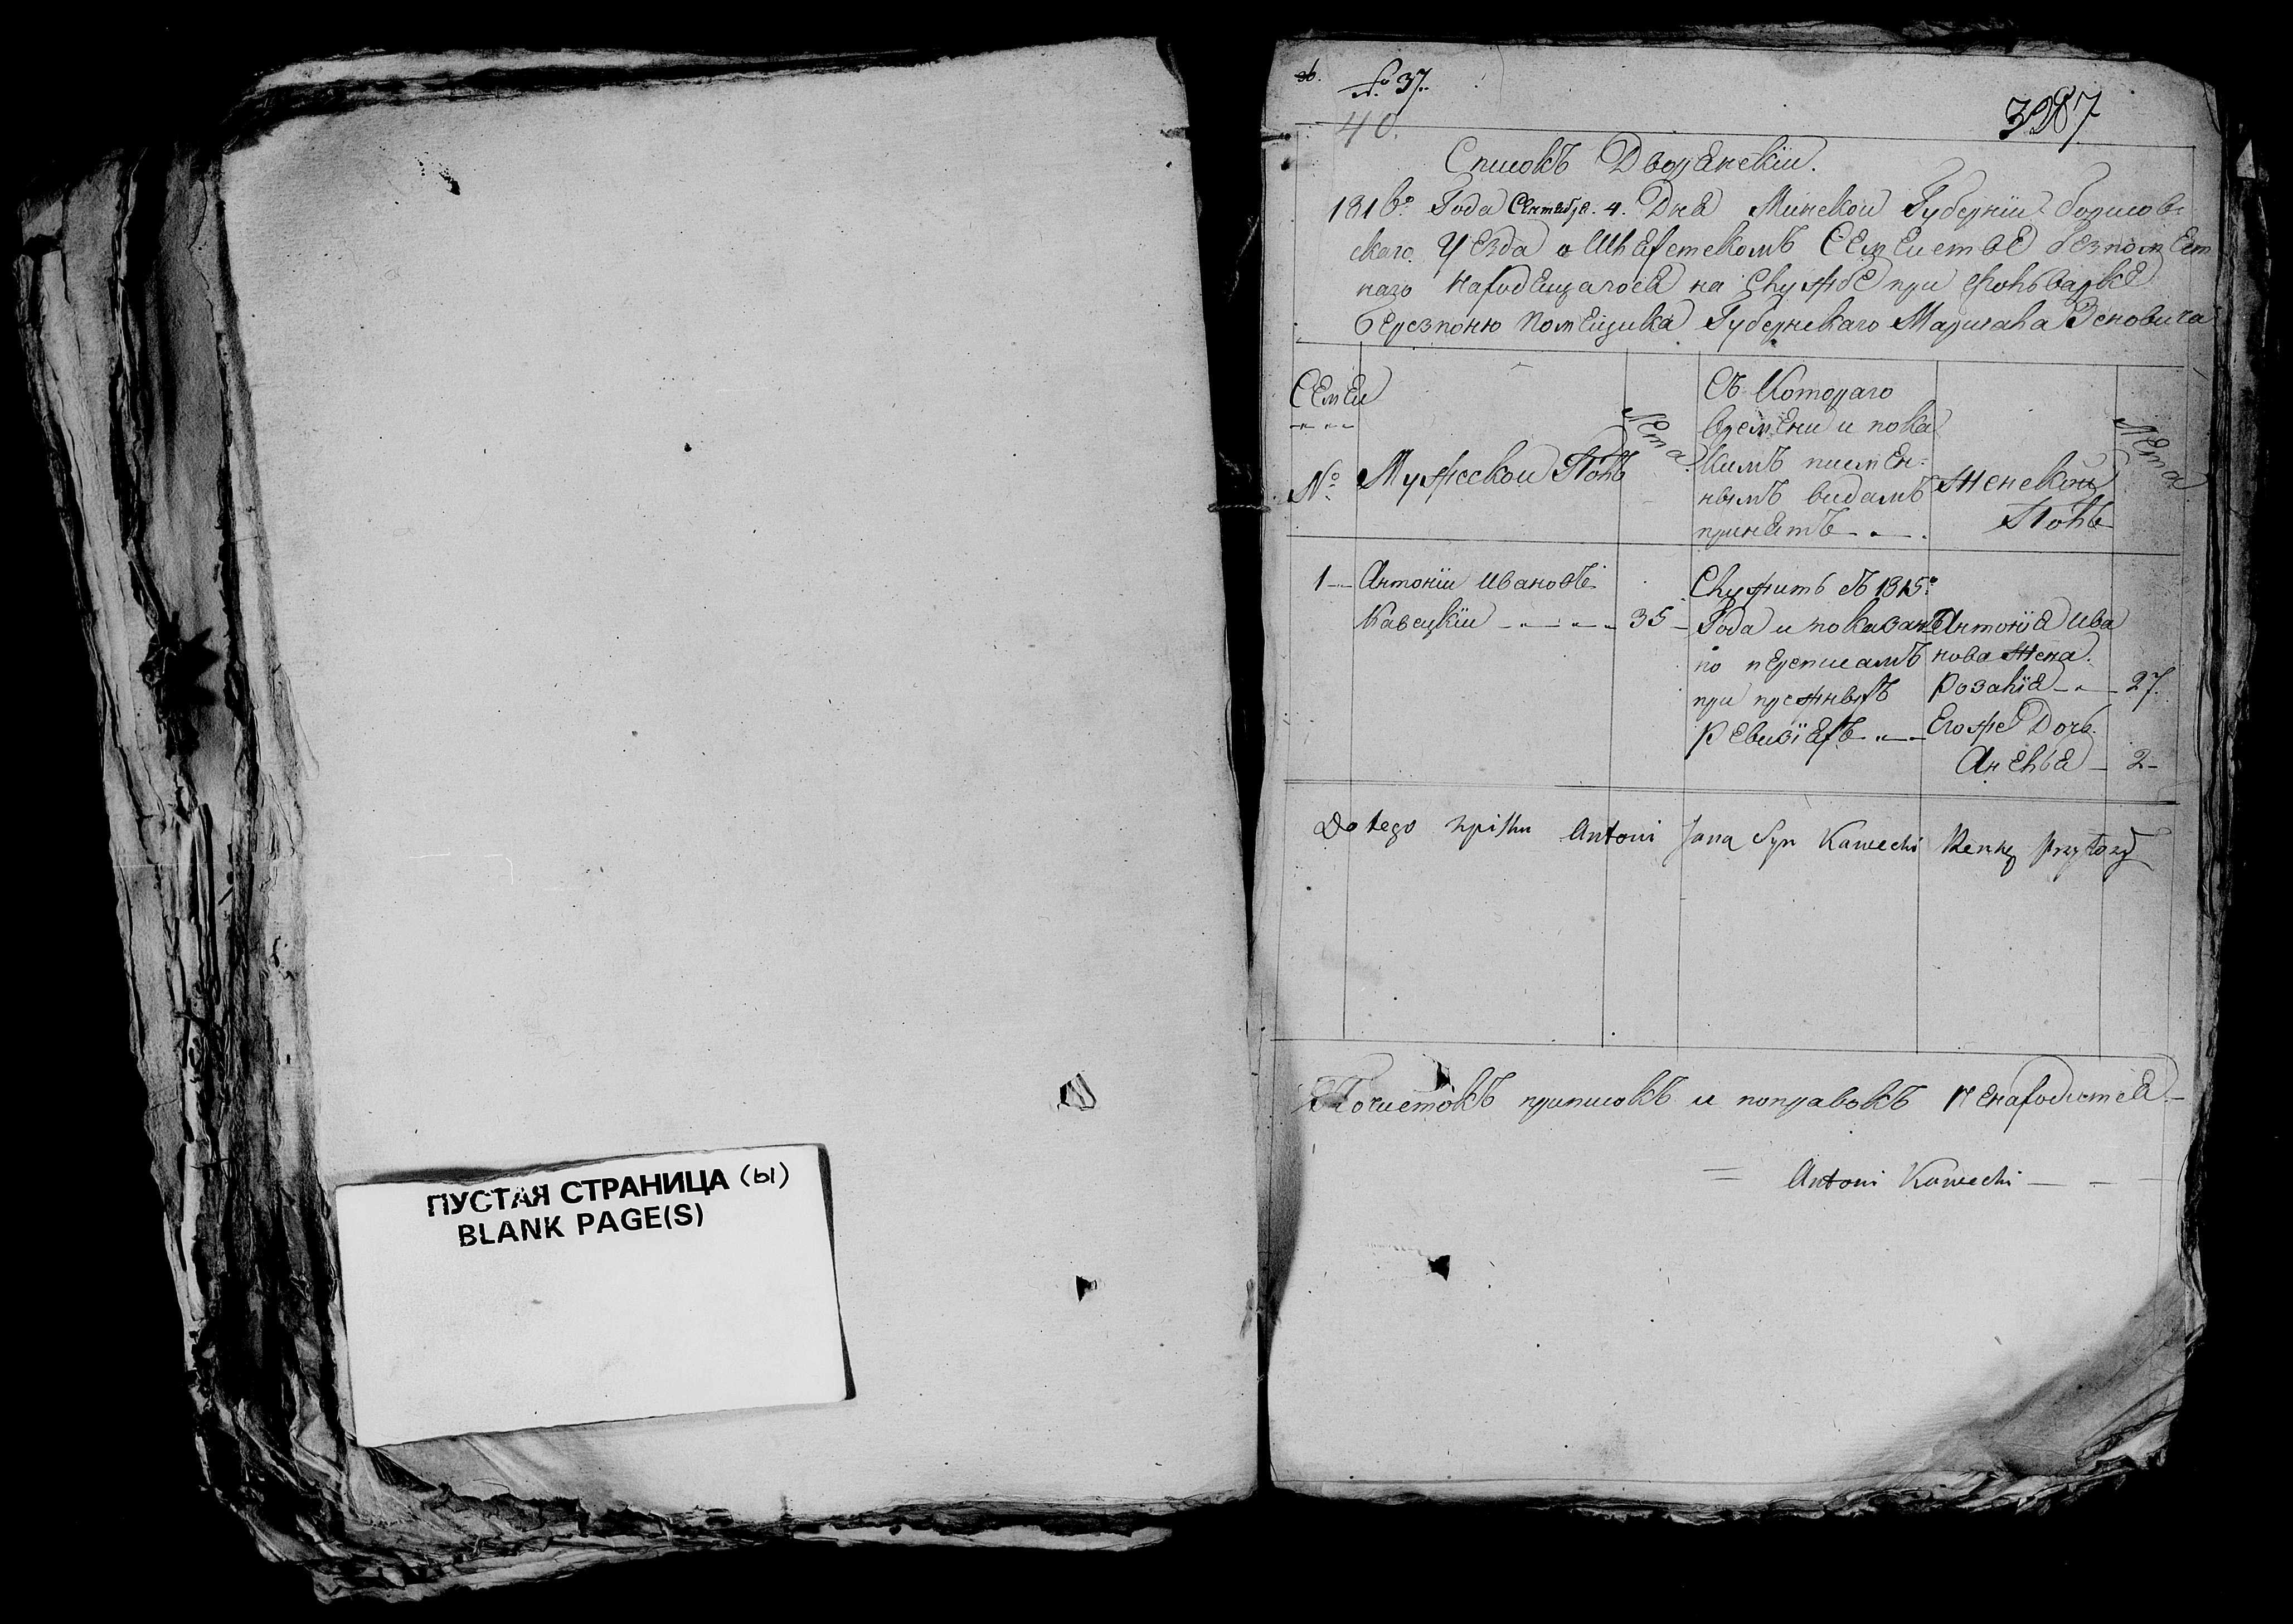 ПУСТАЯ СТРАНИЦА (ы)
BLANK PAGE(S)
№ 37.
40.
3287
Списокъ Дворянскiи.
1816º Года Сентября. 4. Дня Минскои Губернiи борисов-
скаго Уезда о Шляхетскомъ Семеистве безпомест
наго находящагося на службе при фольварке
березполю помещика Губернскаго Маршала Зеновича
Семеи
№
Мужескои Полъ
Лета
Съ Котораго
времени и пока
кимъ писмен-
нымъ видамъ
принятъ
Женской
Полъ
Лета
1 Антонiи Ивановъ
Кавецкiи 35
Служитъ съ 1815º
Года и показанъ
по переписамъ
при прежныхъ
Ревизiяхъ
Антонiя Ива
нова Жена
Розалiя 27.
Егоже Дочь
Анеля 2
Do tego spisku Antoni Jana Syn Kawecki Renkę przyłozy
Почистокъ приписокъ и поправокъ ненаходится
Antoni Kawecki